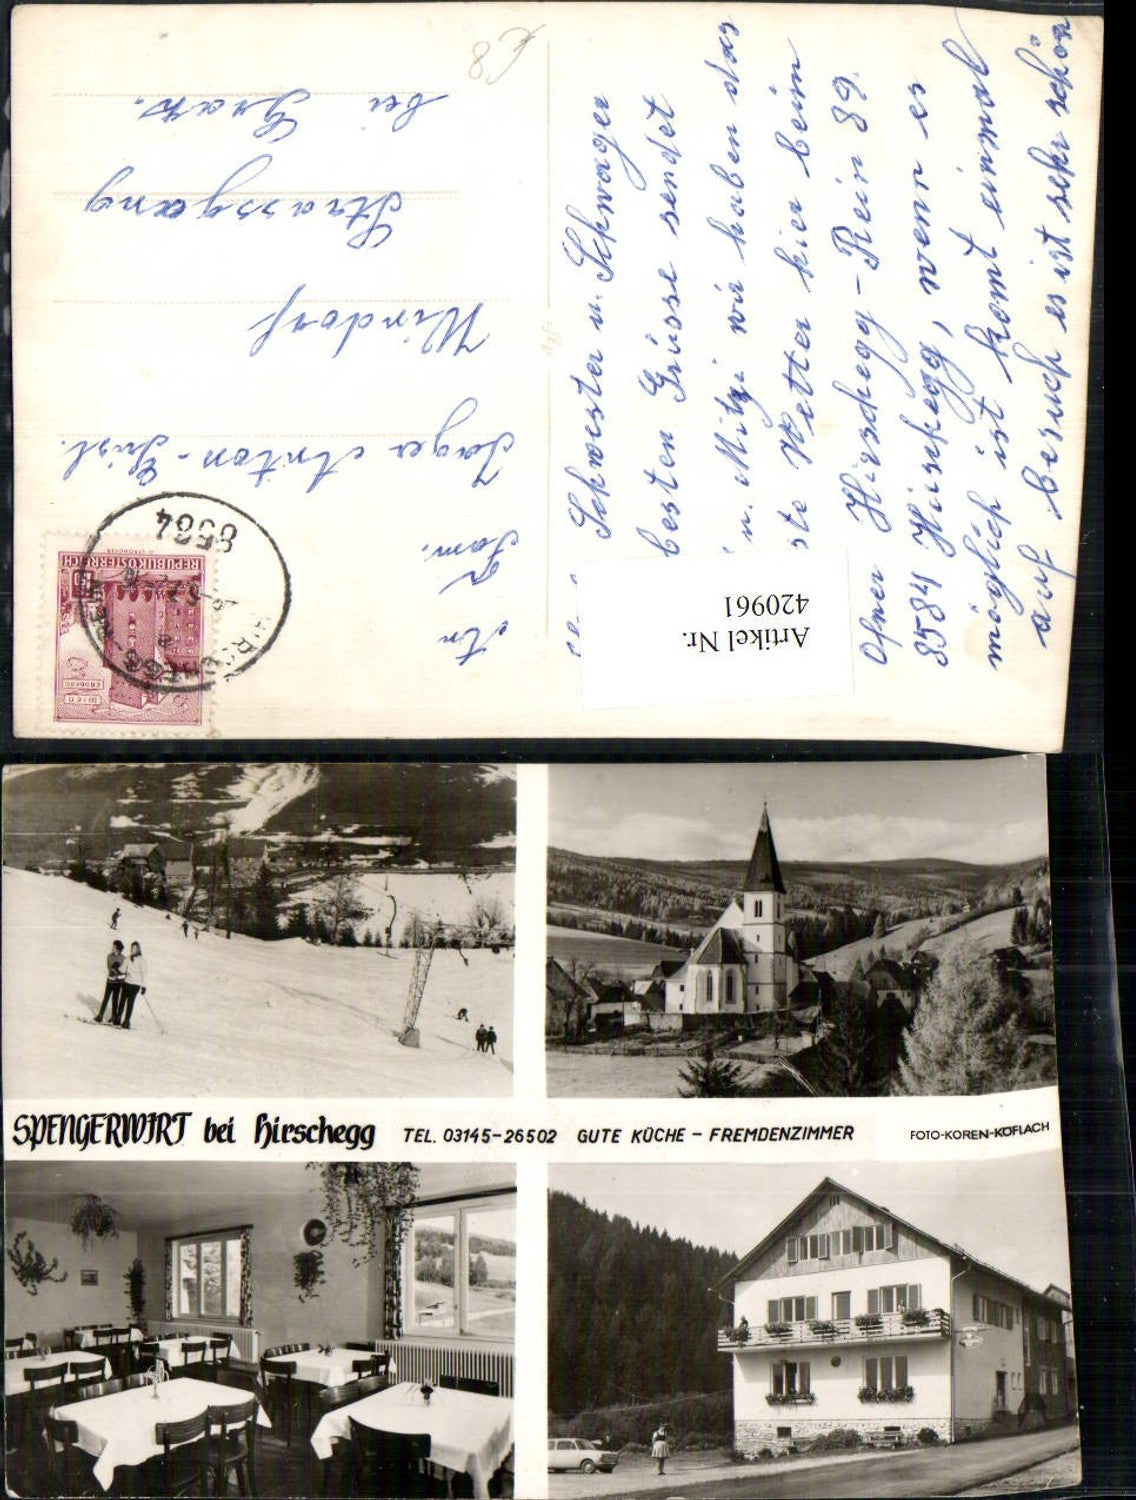 € 8
Schwester u. Schwager
besten Grüsse sendet
u. Mitzi wir haben das
ste Wetter hier beim
Ofner Hirschegg - Rein 89.
8584 Hirschegg, wenn es
möglich ist komt einmal
auf besuch es ist sehr schön
An
Fam.
Jager Anton - Gisl.
Windorf
Strassgang
bei Graz.
8584
REPUBLIK ÖSTERREICH
WIEN
ERDBERG
Artikel Nr.
420961
SPENGERWIRT bei Hirschegg TEL. 03145-26502 GUTE KÜCHE - FREMDENZIMMER FOTO-KOREN-KÖFLACH